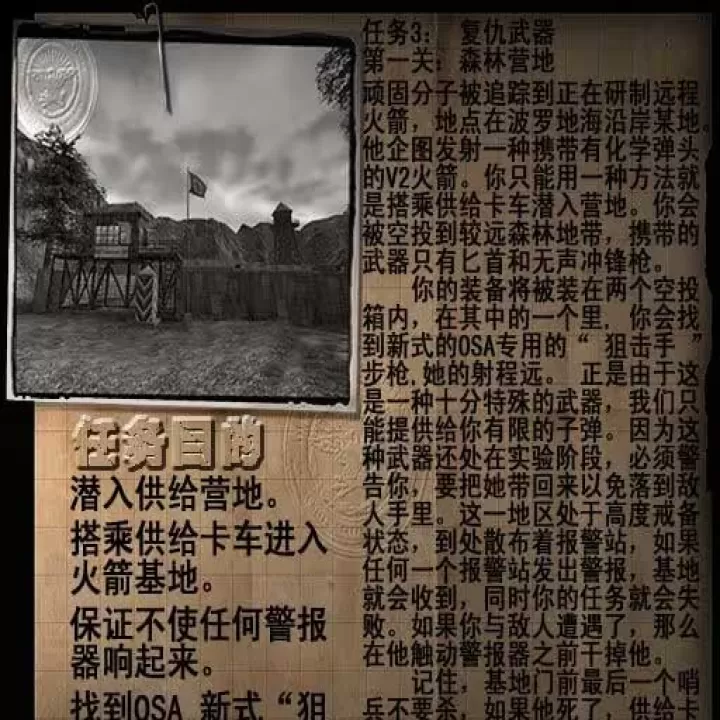 任务3： 复仇武器
第一关：森林营地
顽固分子被追踪到正在研制远程
火箭，地点在波罗地海沿岸某地。
他企图发射一种携带有化学弹头
的V2火箭。你只能用一种方法就
是搭乘供给卡车潜入营地。你会
被空投到较远森林地带，携带的
武器只有匕首和无声冲锋枪。
你的装备将被装在两个空投
箱内，在其中的一个里，你会找
到新式的OSA专用的“ 狙击手 ”
步枪,她的射程远。 正是由于这
是一种十分特殊的武器，我们只
能提供给你有限的子弹。因为这
种武器还处在实验阶段，必须警
告你，要把她带回来以免落到敌
人手里。这一地区处于高度戒备
状态，到处散布着报警站，如果
任何一个报警站发出警报，基地
就会收到，同时你的任务就会失
败。如果你与敌人遭遇了，那么
在他触动警报器之前干掉他。
记住，基地门前最后一个哨
兵不要杀，如果他死了，供给卡
任务目的
潜入供给营地。
搭乘供给卡车进入
火箭基地。
保证不使任何警报
器响起来。
找到OSA 新式“狙